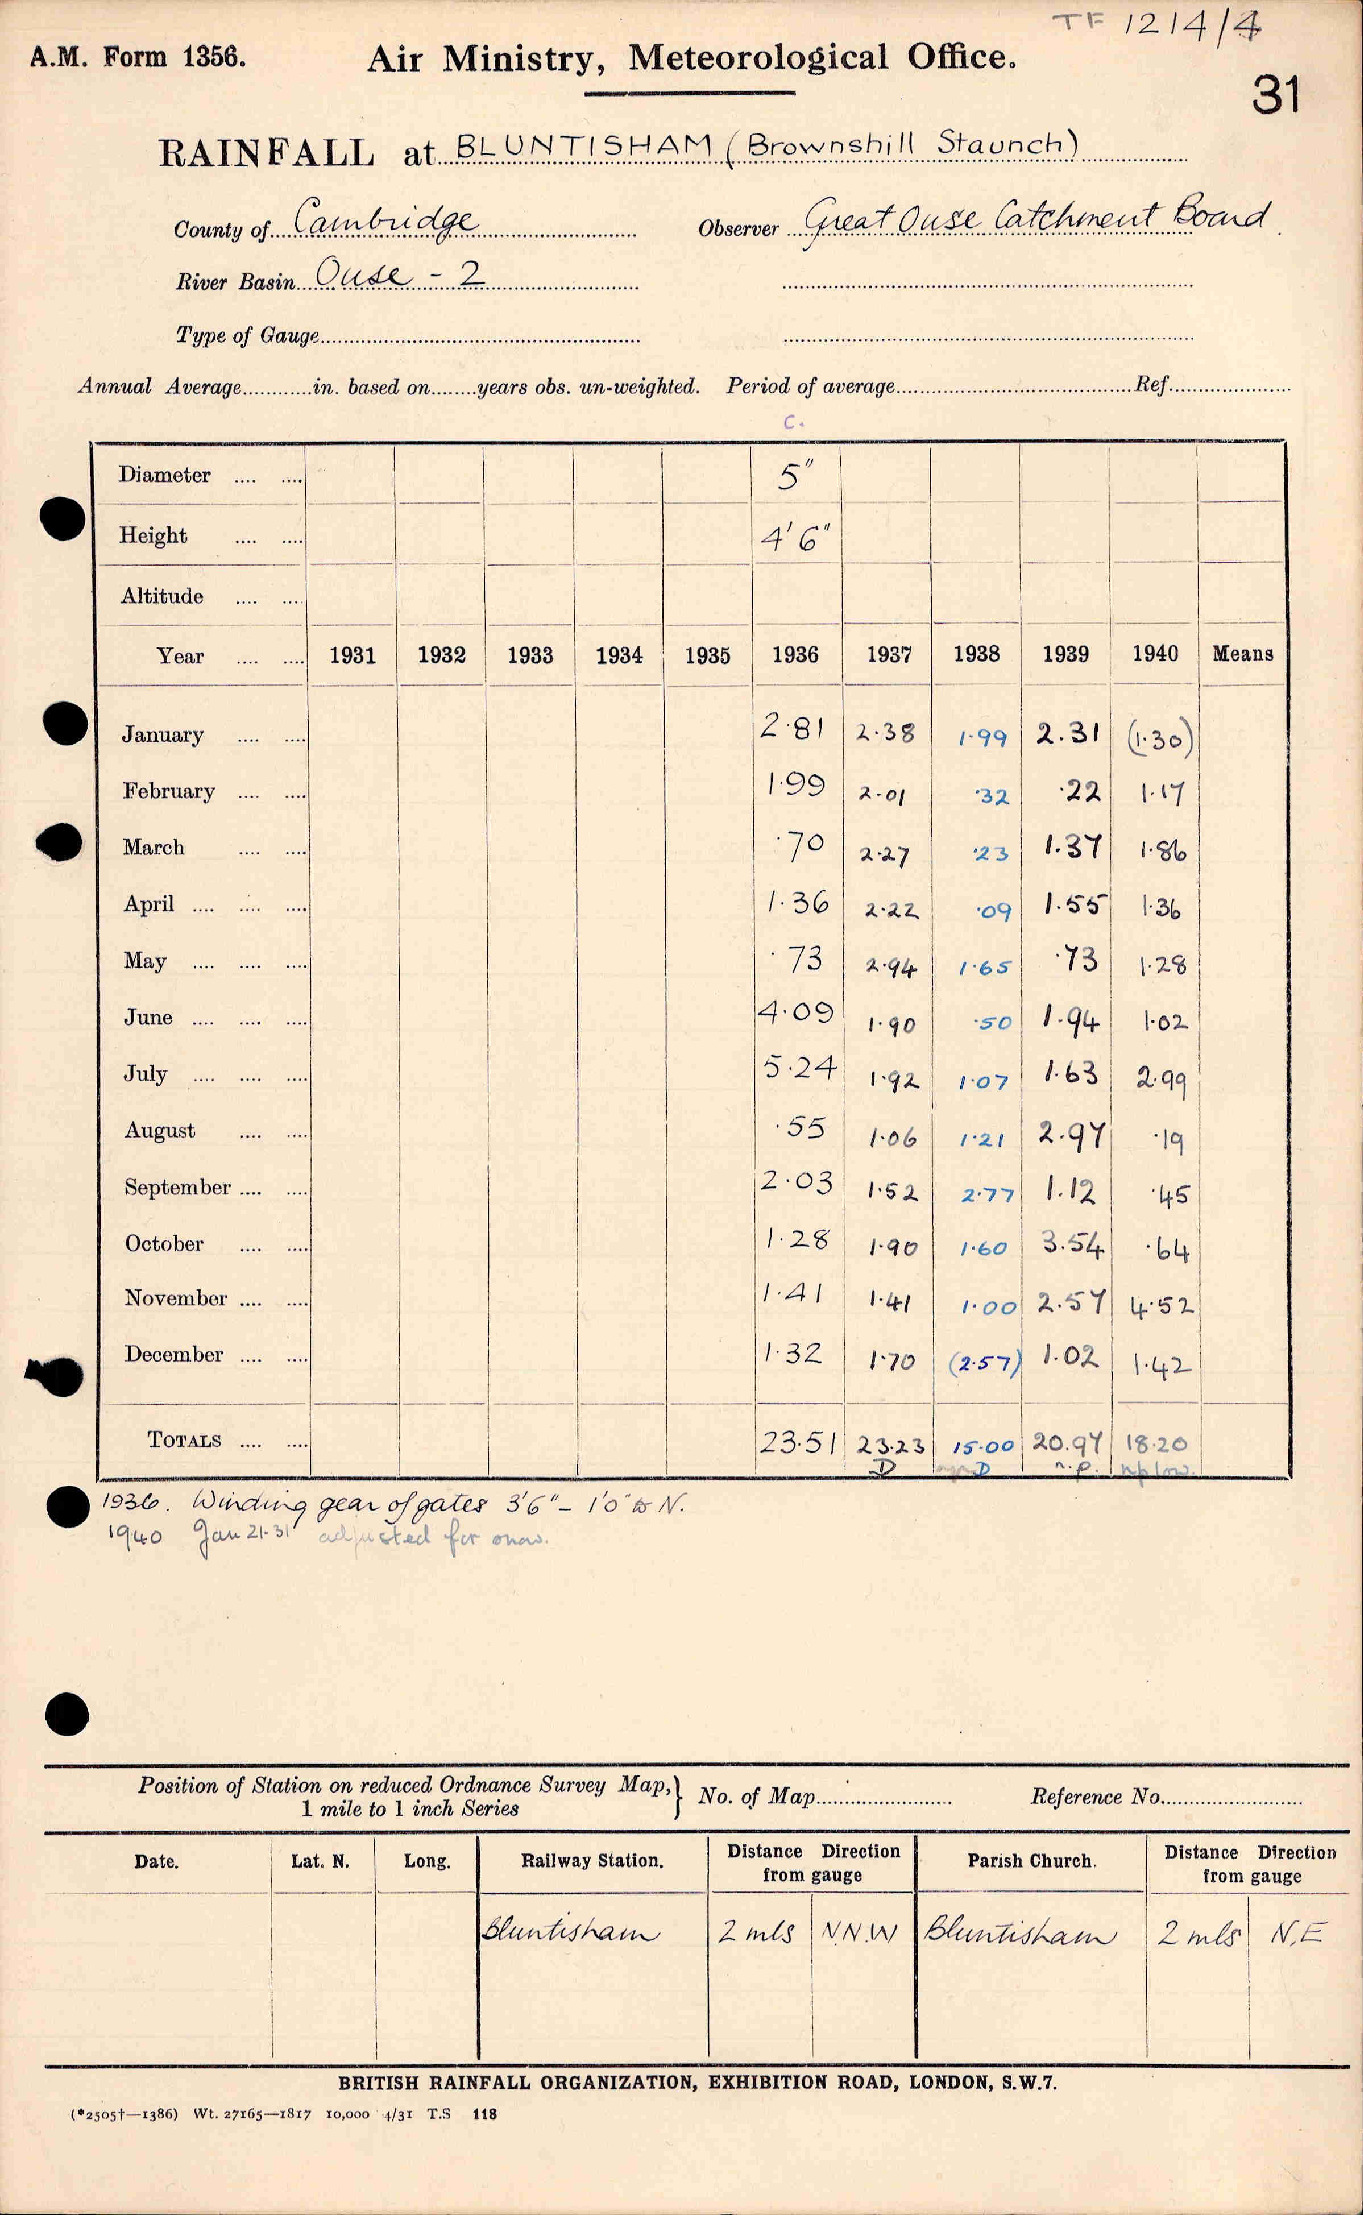 TF 1214/4
A.M. Form 1356.
Air Ministry, Meteorological Office.
31
RAINFALL at BLUNTISHAM (Brownshill Staunch)
County of Cambridge Observer Great Ouse Catchment Board
River Basin Ouse - 2
Type of Gauge
Annual Average in. based on years obs. un-weighted. Period of average Ref.
C.
Diameter 5"
Height 4'6"
Altitude
Year 1931 1932 1933 1934 1935 1936 1937 1938 1939 1940 Means
January 2.81 2.38 1.99 2.31 (1.30)
February 1.99 2.01 .32 .22 1.17
March .70 2.27 .23 1.37 1.86
April 1.36 2.22 .09 1.55 1.36
May .73 2.94 1.65 .73 1.28
June 4.09 1.90 .50 1.94 1.02
July 5.24 1.92 1.07 1.63 2.99
August .55 1.06 1.21 2.97 .19
September 2.03 1.52 2.77 1.12 .45
October 1.28 1.90 1.60 3.54 .64
November 1.41 1.41 1.00 2.57 4.52
December 1.32 1.70 (2.57) 1.02 1.42
TOTALS 23.51 23.23 15.00 20.97 18.20
D D n.p. n.p low.
1936. Winding gear of gates 3'6" - 1'0" to N.
1940 Jan 21-31 adjusted for snow.
Position of Station on reduced Ordnance Survey Map, 1 mile to 1 inch Series } No. of Map Reference No.
Date. Lat. N. Long. Railway Station. Distance Direction from gauge Parish Church. Distance Direction from gauge
Bluntisham 2 mls N.N.W Bluntisham 2 mls N.E
BRITISH RAINFALL ORGANIZATION, EXHIBITION ROAD, LONDON, S.W.7.
(*2505†—1386) Wt. 27165—1817 10,000 4/31 T.S 118